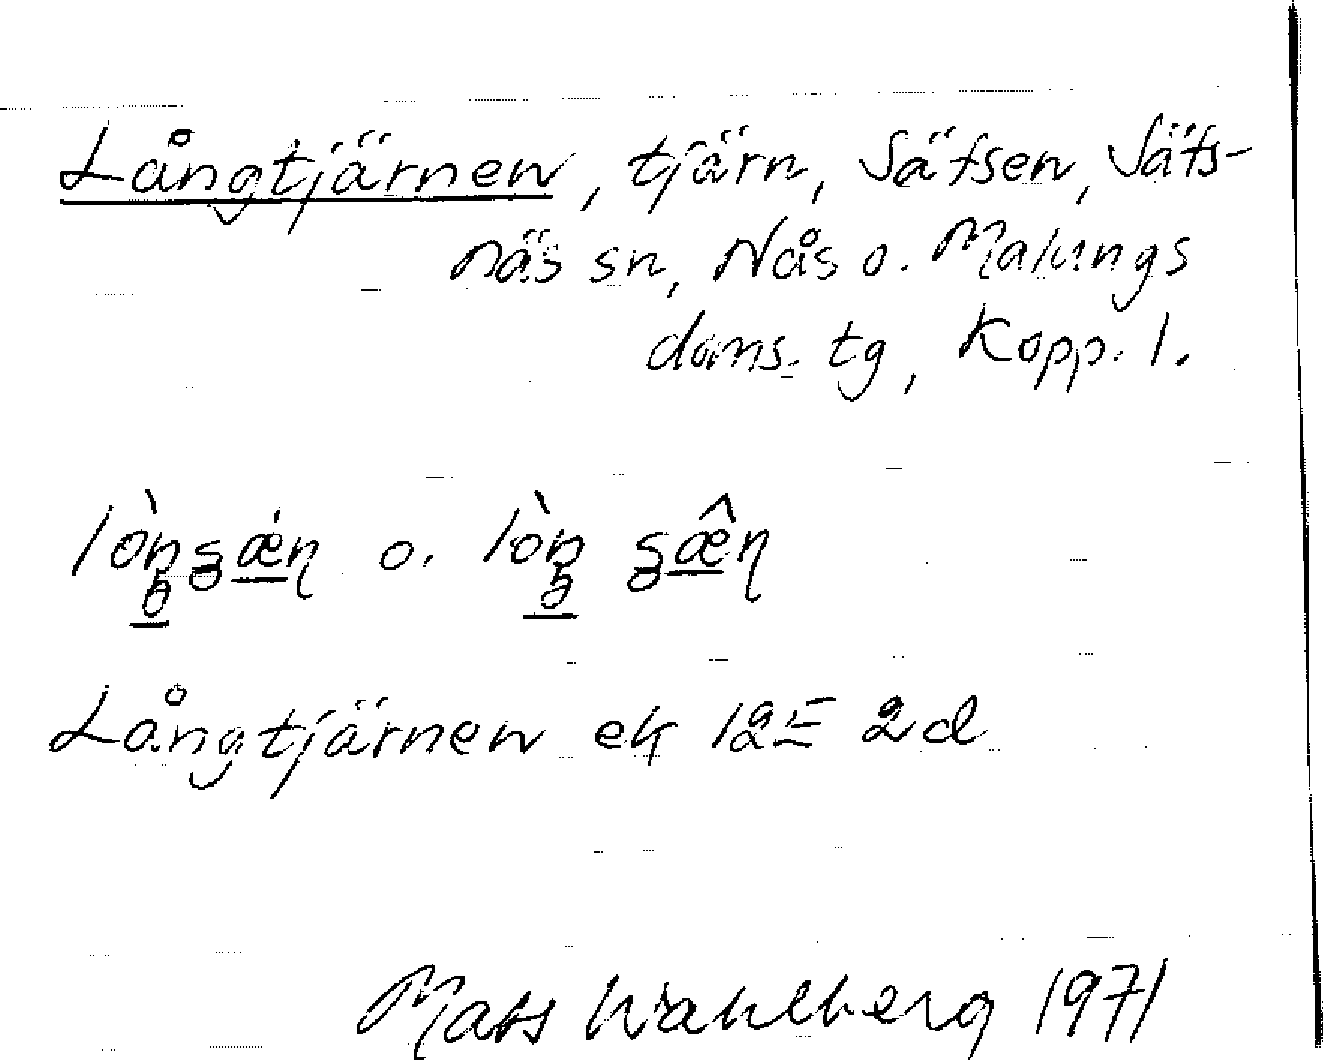 Långtjärnen, tjärn, Säfsen, Säfs-
näs sn, Nås o. Malungs
doms. tg, Kopp. l.
o.
Långtjärnen ek 12E 2d
Mats Wahlberg 1971